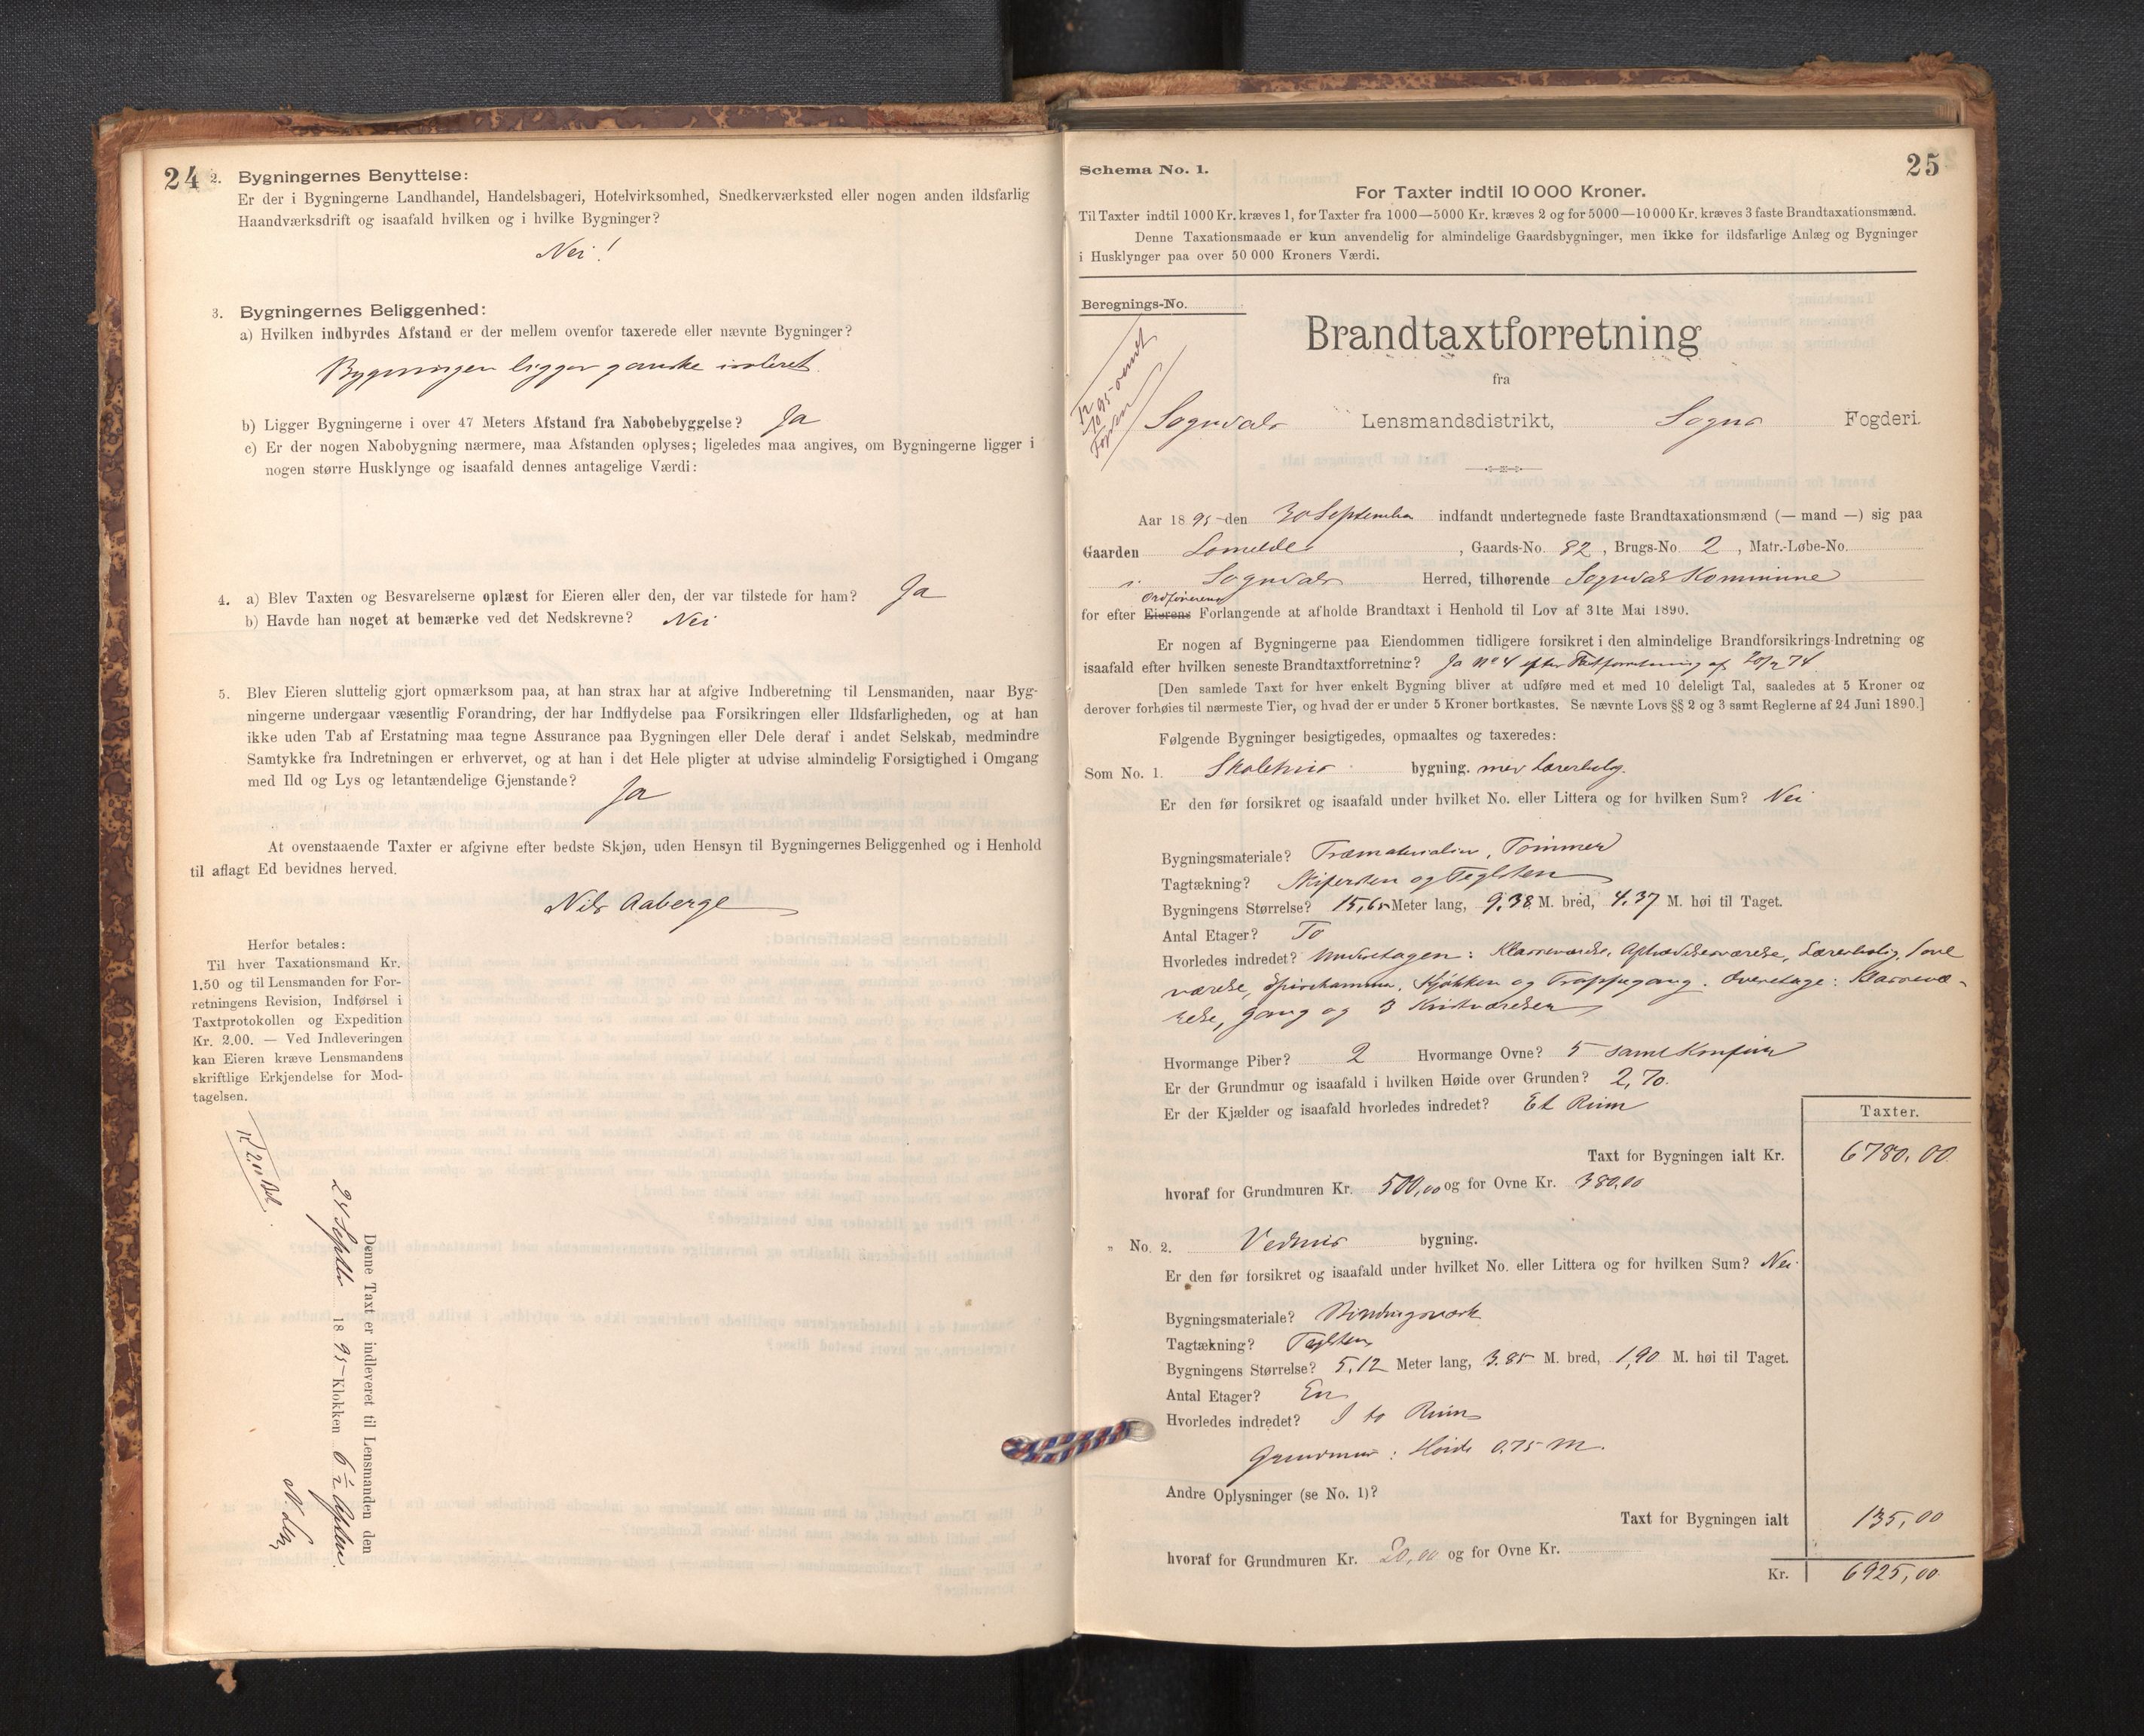 24 2. Bygningernes Benyttelse:
Er der i Bygningerne Landhandel, Handelsbageri, Hotelvirksomhed, Snedkerværksted eller nogen anden ildsfarlig
Haandværksdrift og isaafald hvilken og i hvilke Bygninger?
Nei!
3. Bygningernes Beliggenhed:
a) Hvilken indbyrdes Afstand er der mellem ovenfor taxerede eller nævnte Bygninger?
Bygningen ligger ganske isoleret.
b) Ligger Bygningerne i over 47 Meters Afstand fra Nabobebyggelse? Ja
c) Er der nogen Nabobygning nærmere, maa Afstanden oplyses; ligeledes maa angives, om Bygningerne ligger i
nogen større Husklynge og isaafald dennes antagelige Værdi:
4. a) Blev Taxten og Besvarelserne oplæst for Eieren eller den, der var tilstede for ham? Ja
b) Havde han noget at bemærke ved det Nedskrevne? Nei
5. Blev Eieren sluttelig gjort opmærksom paa, at han strax har at afgive Indberetning til Lensmanden, naar Byg-
ningerne undergaar væsentlig Forandring, der har Indflydelse paa Forsikringen eller Ildsfarligheden, og at han
ikke uden Tab af Erstatning maa tegne Assurance paa Bygningen eller Dele deraf i andet Selskab, medmindre
Samtykke fra Indretningen er erhvervet, og at han i det Hele pligter at udvise almindelig Forsigtighed i Omgang
med Ild og Lys og letantændelige Gjenstande? Ja
At ovenstaaende Taxter er afgivne efter bedste Skjøn, uden Hensyn til Bygningernes Beliggenhed og i Henhold
til aflagt Ed bevidnes herved.
Nils Aaberge
Herfor betales:
Til hver Taxationsmand Kr.
1.50 og til Lensmanden for For-
retningens Revision, Indførsel i
Taxtprotokollen og Expedition
Kr. 2.00. — Ved Indleveringen
kan Eieren kræve Lensmandens
skriftlige Erkjendelse for Mod-
tagelsen.
Denne Taxt er indleveret til Lensmanden den
24 Septbr 1895 Klokken 6 1/2
25
Schema No. 1.
For Taxter indtil 10 000 Kroner.
Til Taxter indtil 1000 Kr. kræves 1, for Taxter fra 1000—5000 Kr. kræves 2 og for 5000—10000 Kr. kræves 3 faste Brandtaxationsmænd.
Denne Taxationsmaade er kun anvendelig for almindelige Gaardsbygninger, men ikke for ildsfarlige Anlæg og Bygninger
i Husklynger paa over 50 000 Kroners Værdi.
Beregnings-No.
Brandtaxtforretning
fra
Sogndals Lensmandsdistrikt, Sogns Fogderi.
Aar 1895 den 30 September indfandt undertegnede faste Brandtaxationsmænd (— mand —) sig paa
Gaarden Lomelde, Gaards-No. 82, Brugs-No. 2, Matr.-Løbe-No.
i Sogndals Herred, tilhørende Sogndal Kommune
Ordførerens
for efter Eierens Forlangende at afholde Brandtaxt i Henhold til Lov af 31te Mai 1890.
Er nogen af Bygningerne paa Eiendommen tidligere forsikret i den almindelige Brandforsikrings-Indretning og
isaafald efter hvilken seneste Brandtaxtforretning? Ja No 4 efter Taxtforretning af 74
[Den samlede Taxt for hver enkelt Bygning bliver at udføre med et med 10 deleligt Tal, saaledes at 5 Kroner og
derover forhøies til nærmeste Tier, og hvad der er under 5 Kroner bortkastes. Se nævnte Lovs §§ 2 og 3 samt Reglerne af 24 Juni 1890.]
Følgende Bygninger besigtigedes, opmaaltes og taxeredes:
Som No. 1. Skolehus bygning. med Lærerbolig.
Er den før forsikret og isaafald under hvilket No. eller Littera og for hvilken Sum? Nei
Bygningsmateriale? Træmaterialier, Tømmer
Tagtækning? Skifersten og Teglsten
Bygningens Størrelse? 15,65 Meter lang, 9.38 M. bred, 4.37 M. høi til Taget.
Antal Etager? To
Hvorledes indredet? Underetagen: Klasseværelse, Aflæselsesværelse, Lærerbolig, Sove
værelse, Spisekammer, Kjøkken og Trappegang. Overetage: Klassevæ-
relse, Gang og 3 Kvistværelser
Hvormange Piber? 2 Hvormange Ovne? 5 samt Komfur
Er der Grundmur og isaafald i hvilken Høide over Grunden? 2,70.
Er der Kjælder og isaafald hvorledes indredet? Et Rum
Taxter.
Taxt for Bygningen ialt Kr. 6780,00
hvoraf for Grundmuren Kr. 500,00 og for Ovne Kr. 380,00
„ No. 2. Vedhus bygning.
Er den før forsikret og isaafald under hvilket No. eller Littera og for hvilken Sum? Nei
Bygningsmateriale? Bindingsværk
Tagtækning? Teglsten
Bygningens Størrelse? 5,12 Meter lang, 3.85 M. bred, 1,90 M. høi til Taget.
Antal Etager? En
Hvorledes indredet? I to Rum
Grundmur: Høide 0.75 M.
Andre Oplysninger (se No. 1)?
Taxt for Bygningen ialt 135,00
hvoraf for Grundmuren Kr. 20,00 og for Ovne Kr.
Kr. 6925,00